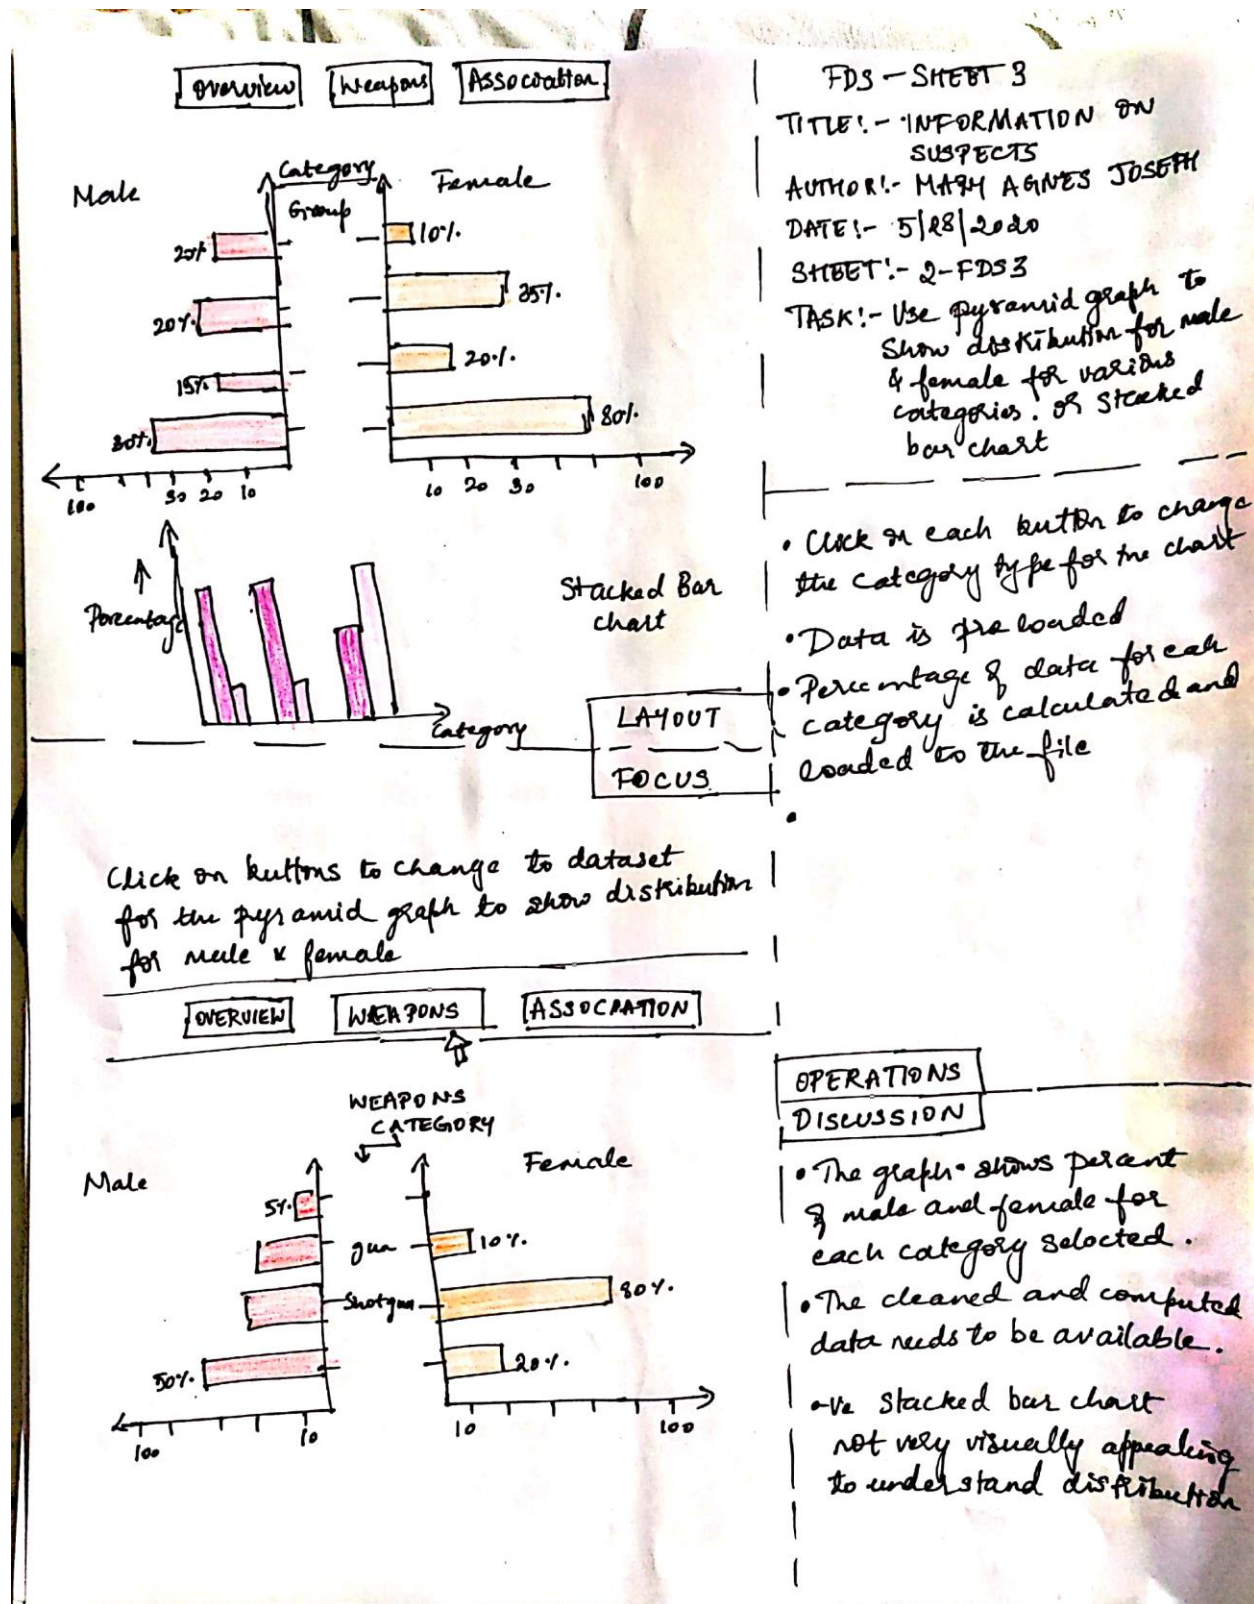 Overview Weapons Association
Male Category Female
Group
20% 10%
20% 35%
15% 20%
80% 80%
100 30 20 10 10 20 30 100
Percentage
Stacked Bar
chart
Category
LAYOUT
FOCUS
Click on buttons to change to dataset
for the pyramid graph to show distribution
for male & female
OVERVIEW WEAPONS ASSOCIATION
WEAPONS
CATEGORY
Male Female
5%
gun 10%
Shotgun 80%
50% 20%
100 10 10 100
FDS - SHEET 3
TITLE:- INFORMATION ON
SUSPECTS
AUTHOR:- MARY AGNES JOSEPH
DATE:- 5/28/2020
SHEET:- 2-FDS3
TASK:- Use pyramid graph to
show distribution for male
& female for various
categories. or stacked
bar chart
• Click on each button to change
the category type for the chart
• Data is pre loaded
• Percentage of data for each
category is calculated and
loaded to the file
•
OPERATIONS
DISCUSSION
• The graph shows percent
of male and female for
each category selected.
• The cleaned and computed
data needs to be available.
-ve stacked bar chart
not very visually appealing
to understand distribution